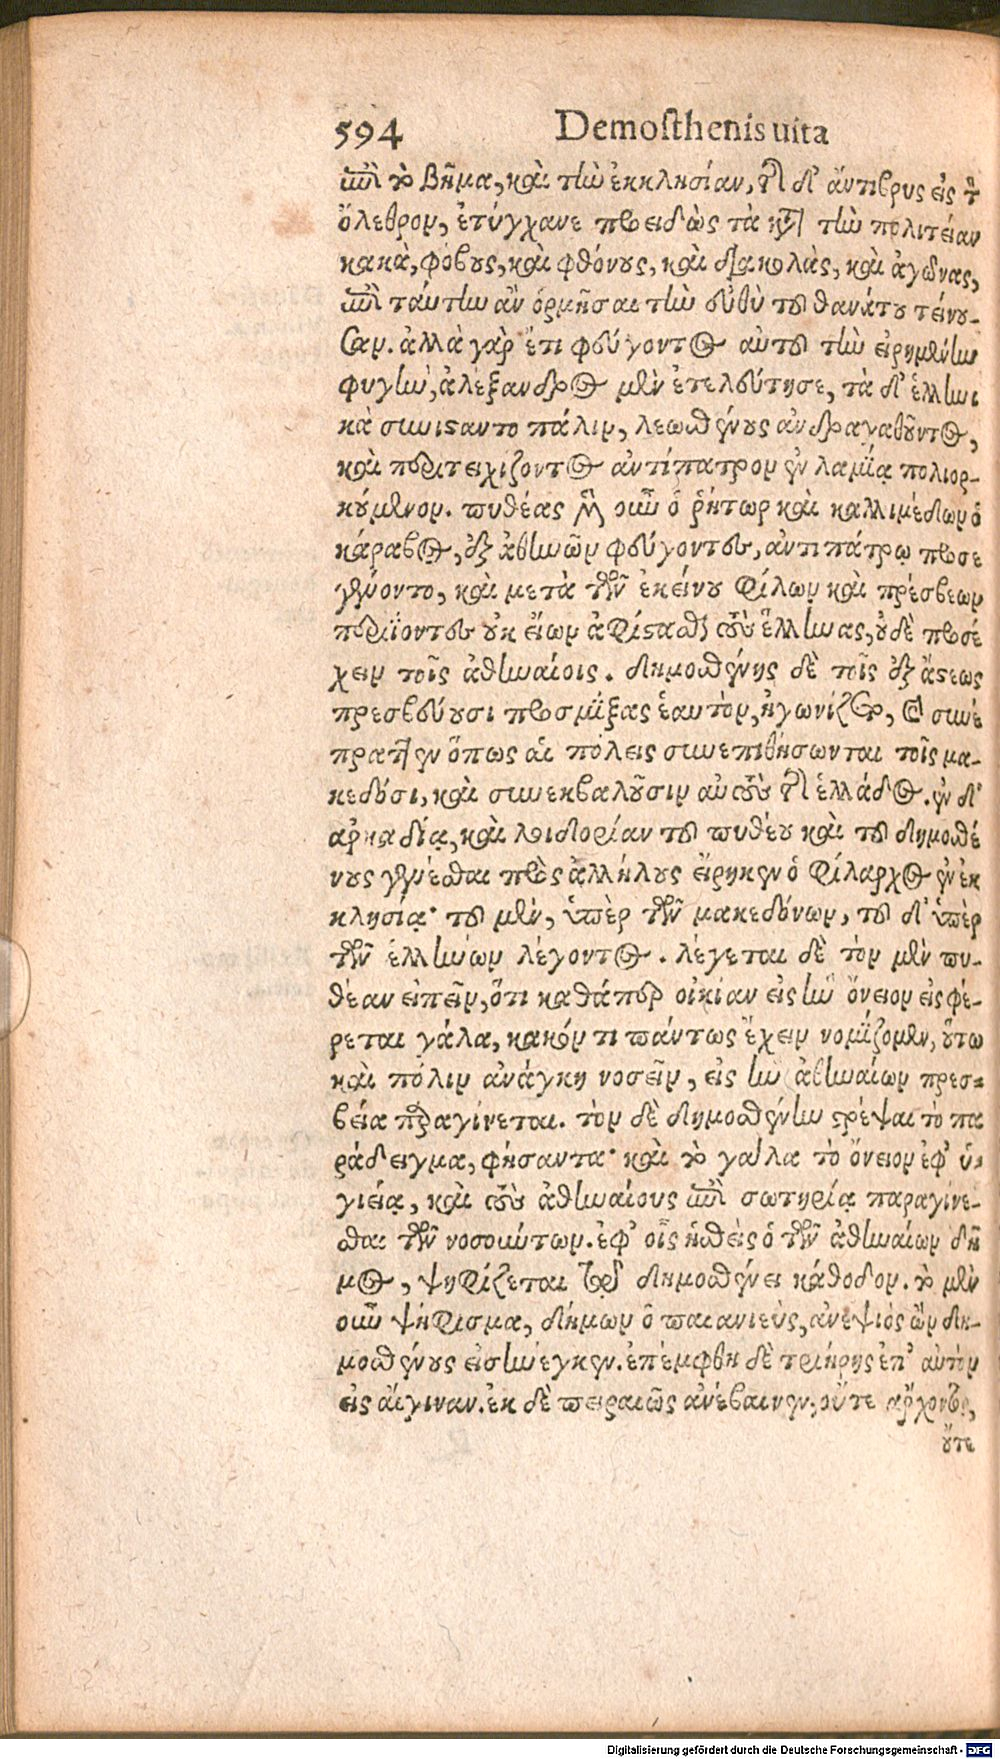 594 Demosthenis uita
ἐπὶ τὸ βῆμα, καὶ τὴν ἐκκλησίαν, τῆς δ' ἄντικρυς εἰς τὸν
ὄλεθρον, ἐτύγχανε προειδὼς τὰ κατὰ τὴν πολιτείαν
κακὰ, φόβους, καὶ φθόνους, καὶ διαβολὰς, καὶ ἀγῶνας,
ἐπὶ ταύτην ἂν ὁρμῆσαι τὴν εὐθὺ τοῦ θανάτου τείνου-
σαν. ἀλλὰ γὰρ ἔτι φεύγοντος αὐτοῦ τὴν εἰρημένην
φυγὴν, ἀλέξανδρος μὲν ἐτελεύτησε, τὰ δ' ἑλληνι
κὰ συνίσταντο πάλιν, λεωσθένους ἀνδραγαθοῦντος,
καὶ περιτειχίζοντος ἀντίπατρον ἐν λαμίᾳ πολιορ-
κούμενον. πυθέας μὲν οὖν ὁ ῥήτωρ καὶ καλλιμέδων ὁ
κάραβος, ἐξ ἀθηνῶν φεύγοντες, ἀντιπάτρῳ προσε
γένοντο, καὶ μετὰ τῶν ἐκείνου φίλων καὶ πρέσβεων
περιϊόντες οὐκ εἴων ἀφίστασθαι τοὺς ἕλληνας, οὐδὲ προσέ
χειν τοῖς ἀθηναίοις. δημοσθένης δὲ τοῖς ἐξ ἄστεως
πρεσβεύουσι προσμίξας ἑαυτὸν, ἠγωνίζετο, καὶ συνέ
πραττεν ὅπως αἱ πόλεις συνεπιθήσωνται τοῖς μα-
κεδόσι, καὶ συνεκβαλοῦσιν αὐτοὺς τῆς ἑλλάδος. ἐν δ'
ἀρκαδίᾳ, καὶ λοιδορίαν τοῦ πυθέου καὶ τοῦ δημοσθέ
νους γενέσθαι πρὸς ἀλλήλους εἴρηκεν ὁ φίλαρχος ἐν ἐκ
κλησίᾳ· τοῦ μὲν, ὑπὲρ τῶν μακεδόνων, τοῦ δ' ὑπὲρ
τῶν ἑλλήνων λέγοντος. λέγεται δὲ τὸν μὲν πυ-
θέαν εἰπεῖν, ὅτι καθάπερ οἰκίαν εἰς ἣν ὄνειον εἰσφέ-
ρεται γάλα, κακόν τι πάντως ἔχειν νομίζομεν, οὕτω
καὶ πόλιν ἀνάγκη νοσεῖν, εἰς ἣν ἀθηναίων πρεσ-
βεία παραγίνεται. τὸν δὲ δημοσθένην στρέψαι τὸ πα
ράδειγμα, φήσαντα· καὶ τὸ γάλα τὸ ὄνειον ἐφ' ὑ-
γιείᾳ, καὶ τοὺς ἀθηναίους ἐπὶ σωτηρίᾳ παραγίνε-
σθαι τῶν νοσούντων. ἐφ' οἷς ἡσθεὶς ὁ τῶν ἀθηναίων δῆ
μος, ψηφίζεται τῷ δημοσθένει κάθοδον. τὸ μὲν
οὖν ψήφισμα, δήμων ὁ παιανιεὺς, ἀνεψιὸς ὢν δη-
μοσθένους εἰσήνεγκεν. ἐπέμφθη δὲ τριήρης ἐπ' αὐτὸν
εἰς αἴγιναν. ἐκ δὲ πειραιῶς ἀνέβαινεν, οὔτε ἄρχοντος,
οὔτε
Digitalisierung gefördert durch die Deutsche Forschungsgemeinschaft - DFG